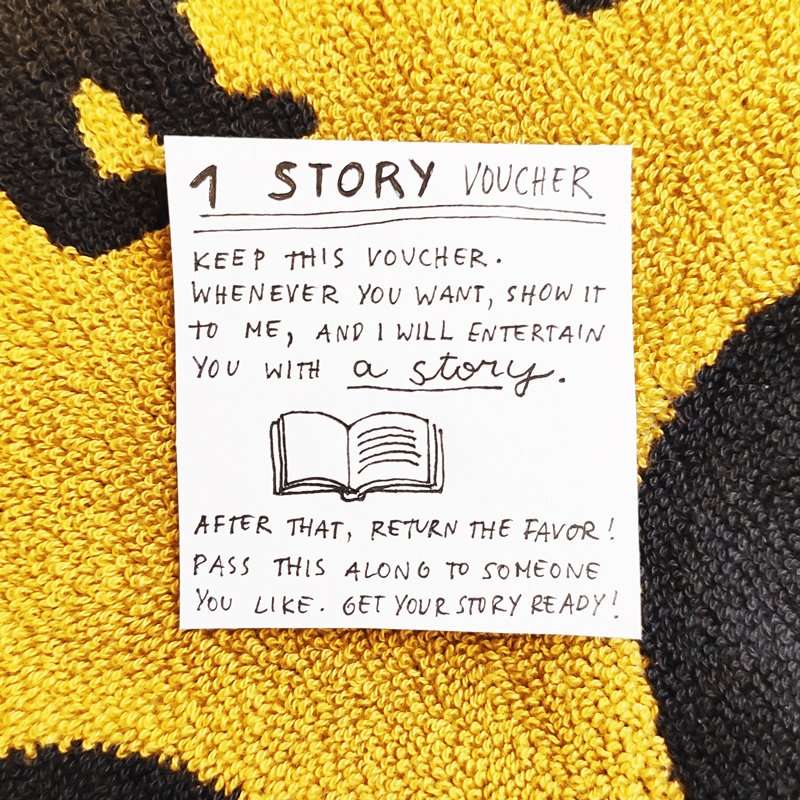 1 STORY VOUCHER
KEEP THIS VOUCHER.
WHENEVER YOU WANT, SHOW IT
TO ME, AND I WILL ENTERTAIN
YOU WITH a story.
AFTER THAT, RETURN THE FAVOR!
PASS THIS ALONG TO SOMEONE
YOU LIKE. GET YOUR STORY READY!